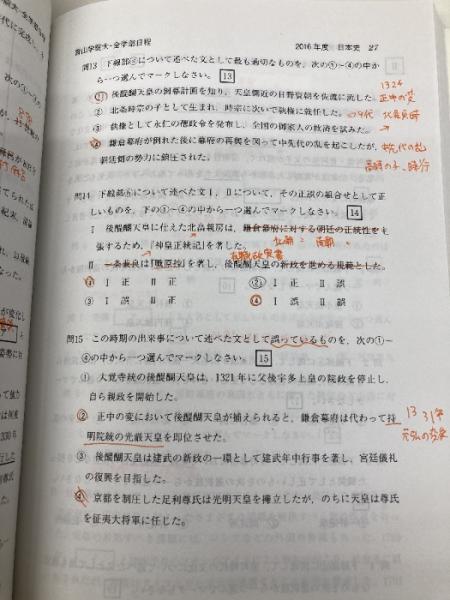 青山学院大-全学部日程
2016年度 日本史 27
問13 下線部ⓐについて述べた文として最も適切なものを,次の①~④の中か
ら一つ選んでマークしなさい。 13
① 後醍醐天皇の倒幕計画を知り,天皇側近の日野資朝を佐渡に流した。
1324
正中の変
② 北条時宗の子として生まれ,時宗に次いで執権に就任した。
9代 北条貞時
③ 執権として永仁の徳政令を発布し,全国の御家人の救済を試みた。
④ 鎌倉幕府が倒れた後に幕府の再興を図って中先代の乱を起こしたが,
新政側の勢力に鎮圧された。
中先代の乱
高時の子、時行
問14 下線部ⓑについて述べた文Ⅰ,Ⅱについて,その正誤の組合せとして正
しいものを,下の①~④の中から一つ選んでマークしなさい。 14
Ⅰ 後醍醐天皇に仕えた北畠親房は,鎌倉幕府に対する朝廷の正統性を主
張するため,『神皇正統記』を著した。
北朝 南朝
有職故実書
Ⅱ 一条兼良は『職原抄』を著し,後醍醐天皇の新政を進める規範とした。
① Ⅰ 正 Ⅱ 正
② Ⅰ 正 Ⅱ 誤
③ Ⅰ 誤 Ⅱ 正
④ Ⅰ 誤 Ⅱ 誤
問15 この時期の出来事について述べた文として誤っているものを,次の①~
④の中から一つ選んでマークしなさい。 15
① 大覚寺統の後醍醐天皇は,1321年に父後宇多上皇の院政を停止し,
自ら親政を開始した。
② 正中の変において後醍醐天皇が捕えられると,鎌倉幕府は代わって持
明院統の光厳天皇を即位させた。
1331年
元弘の変
③ 後醍醐天皇は建武の新政の一環として建武年中行事を著し,宮廷儀礼
の復興を目指した。
④ 京都を制圧した足利尊氏は光明天皇を擁立したが,のちに天皇は尊氏
を征夷大将軍に任じた。